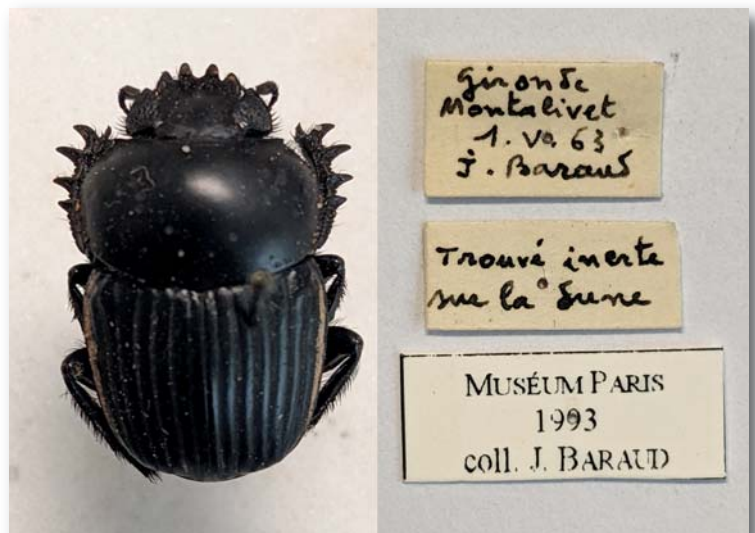 Gironde
Montalivet
1. VI. 63
J. Baraud
Trouvé inerte
sur la dune
MUSÉUM PARIS
1993
coll. J. BARAUD